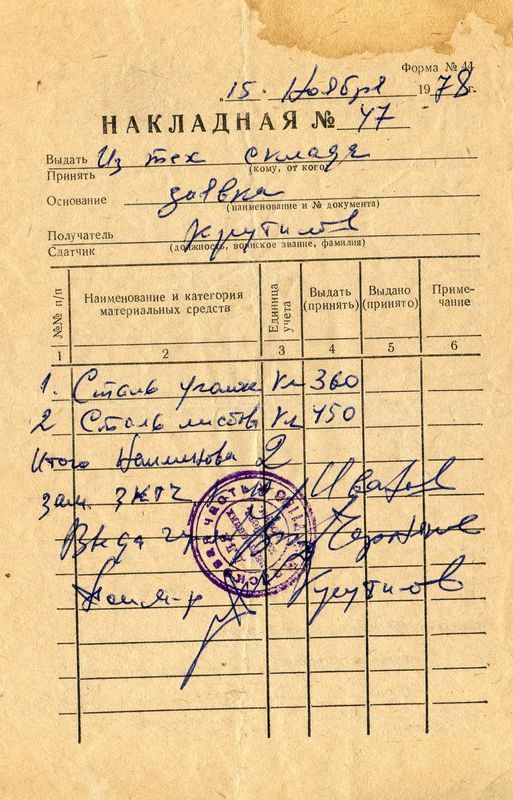 Форма № 44
15. Ноября 1978 г.
НАКЛАДНАЯ № 47
Выдать Из тех склада
Принять (кому, от кого)
Основание заявка
(наименование и № документа)
Получатель Крутилов
Сдатчик (должность, воинское звание, фамилия)
№№ п/п Наименование и категория материальных средств Единица учета Выдать (принять) Выдано (принято) Приме-чание
1 2 3 4 5 6
1. Сталь уголк Кг 360
2 Сталь листов Кг 450
Итого Наименова 2
зам. Иванов
Крутилов